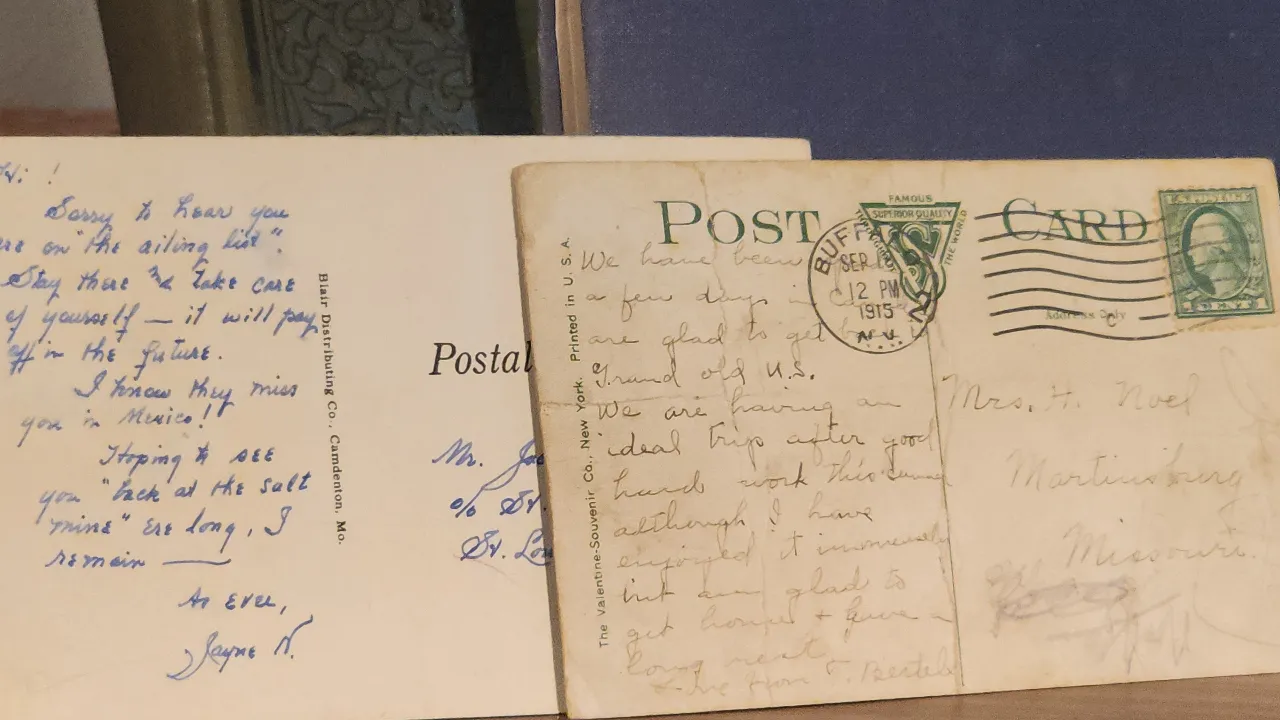 Hi!
Sorry to hear you
on "the ailing list".
Stay there & take care
of yourself — it will pay
off in the future.
I know they miss
you in Mexico!
Hoping to see
you "back at the salt
mine" ere long, I
remain —
As ever,
Jayne N.
Blair Distributing Co., Camdenton, Mo.
Postal
Mr.
c/o
St.
POST CARD
FAMOUS
SUPERIOR QUALITY
THE WORLD
BUFFALO
SEP
12 PM
1915
N.Y.
U.S. POSTAGE
Address Only
The Valentine-Souvenir Co., New York. Printed in U.S.A.
We have been
a few days in
are glad to get
Grand old U.S.
We are having an
ideal trip after good
hard work this
although I have
enjoyed it immensely
but am glad to
get home + have a
long rest.
Mrs. H. Noel
Martinsburg
Missouri.